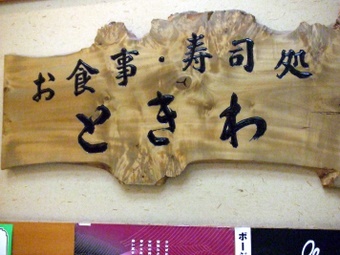 お食事・寿司処
ときわ
ボー